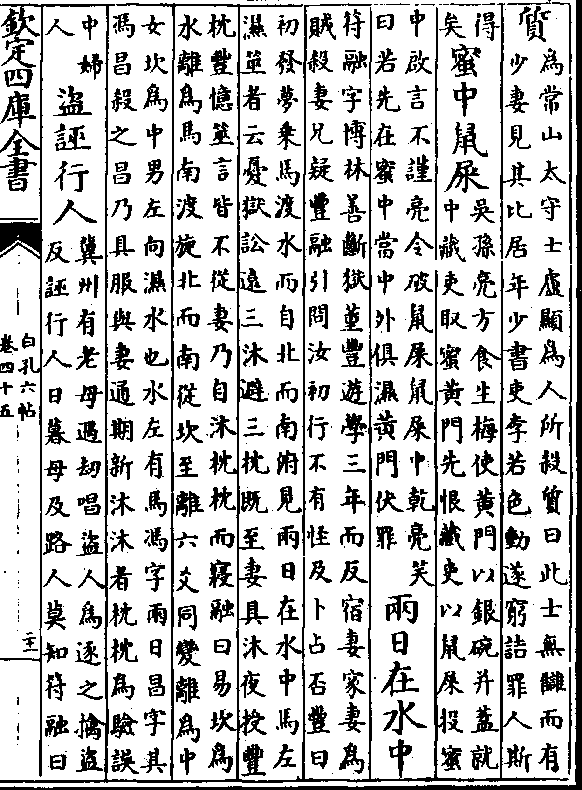 質
為常山太守士盧顯為人所殺質曰此士無讎而有
少妻見其比居年少書吏李若色動遂窮詰罪人斯
得
矣
蜜中鼠屎
吳孫亮方食生梅使黃門以銀碗并蓋就
中藏吏取蜜黃門先恨藏吏以鼠屎投蜜
中啟言不謹亮令破鼠屎鼠屎中乾亮笑
曰若先在蜜中當中外俱濕黃門伏罪
兩日在水中
符融字博林善斷獄董豐遊學三年而反宿妻家妻為
賊殺妻兄疑豐融引問汝初行不有怪及卜占否豐曰
初發夢乘馬渡水而自北而南俯見兩日在水中馬左
濕筮者云憂獄訟遠三沐避三枕既至妻具沐夜授豐
枕豐憶筮言皆不從妻乃自沐枕枕而寢融曰易坎為
水離為馬南渡旋北而南從坎至離六爻同變離為中
女坎為中男左向濕水也水左有馬馮字兩日昌字其
馮昌殺之昌乃具服與妻通期新沐沐者枕枕為驗誤
中婦
人
盜誣行人
冀州有老母遇劫唱盜人為逐之擒盜
反誣行人日暮母及路人莫知符融曰
欽定四庫全書
白孔六帖
卷四十五
二十一